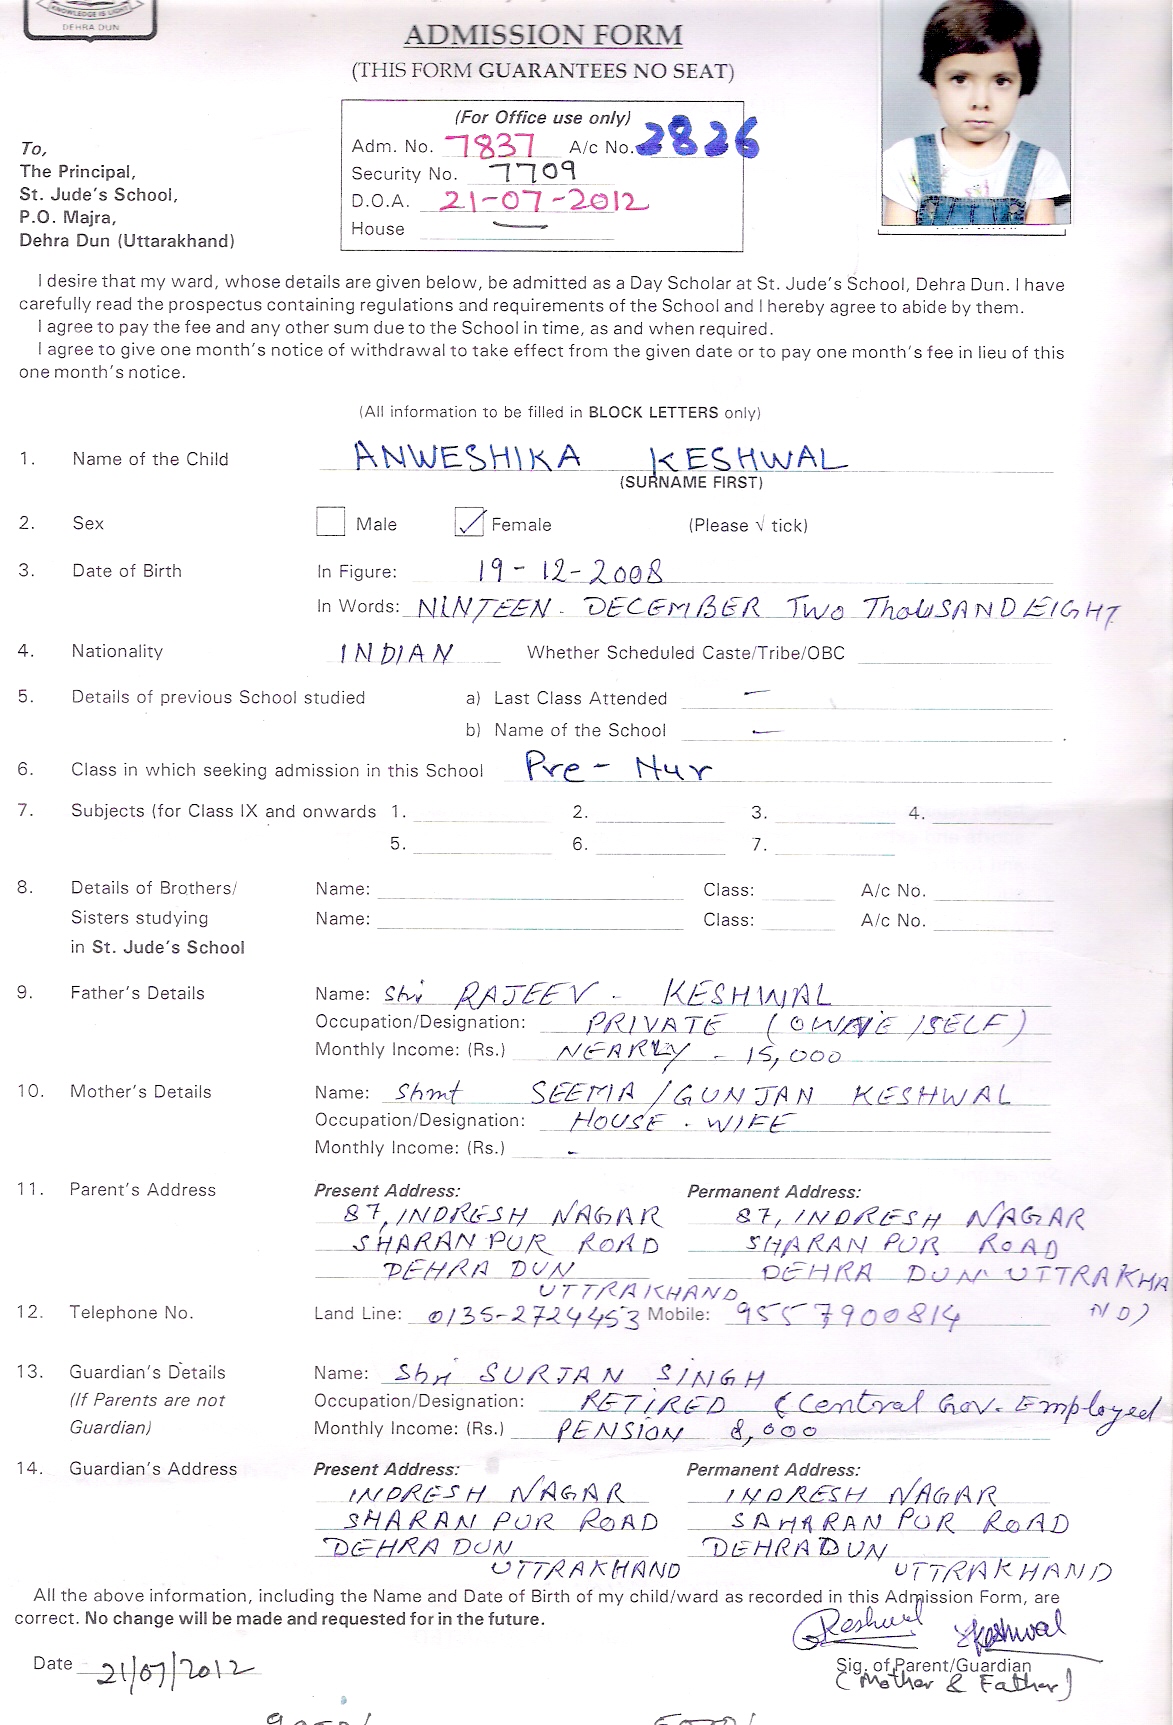 KNOWLEDGE IS LIGHT
DEHRA DUN
ADMISSION FORM
(THIS FORM GUARANTEES NO SEAT)
(For Office use only)
Adm. No. 7837 A/c No. 2826
Security No. 7709
D.O.A. 21-07-2012
House —
To,
The Principal,
St. Jude's School,
P.O. Majra,
Dehra Dun (Uttarakhand)
I desire that my ward, whose details are given below, be admitted as a Day Scholar at St. Jude's School, Dehra Dun. I have
carefully read the prospectus containing regulations and requirements of the School and I hereby agree to abide by them.
I agree to pay the fee and any other sum due to the School in time, as and when required.
I agree to give one month's notice of withdrawal to take effect from the given date or to pay one month's fee in lieu of this
one month's notice.
(All information to be filled in BLOCK LETTERS only)
1. Name of the Child ANWESHIKA KESHWAL
(SURNAME FIRST)
2. Sex Male Female (Please √ tick)
3. Date of Birth In Figure: 19-12-2008
In Words: NINTEEN - DECEMBER TWO THOUSAND EIGHT
4. Nationality INDIAN Whether Scheduled Caste/Tribe/OBC
5. Details of previous School studied a) Last Class Attended —
b) Name of the School —
6. Class in which seeking admission in this School Pre-Nur
7. Subjects (for Class IX and onwards 1. 2. 3. 4.
5. 6. 7.
8. Details of Brothers/ Name: Class: A/c No.
Sisters studying Name: Class: A/c No.
in St. Jude's School
9. Father's Details Name: Shri RAJEEV - KESHWAL
Occupation/Designation: PRIVATE (OWNE/SELF)
Monthly Income: (Rs.) NEARLY - 15,000
10. Mother's Details Name: Shmt SEEMA/GUNJAN KESHWAL
Occupation/Designation: HOUSE - WIFE
Monthly Income: (Rs.) -
11. Parent's Address Present Address: Permanent Address:
87, INDRESH NAGAR 87, INDRESH NAGAR
SHARAN PUR ROAD SHARAN PUR ROAD
DEHRA DUN DEHRA DUN UTTRAKHA
UTTRAKHAND ND)
12. Telephone No. Land Line: 0135-2724453 Mobile: 9557900814
13. Guardian's Details Name: Shri SURJAN SINGH
(If Parents are not Occupation/Designation: RETIRED (Central Gov. Employed
Guardian) Monthly Income: (Rs.) PENSION 8,000
14. Guardian's Address Present Address: Permanent Address:
INDRESH NAGAR INDRESH NAGAR
SHARAN PUR ROAD SAHARAN PUR ROAD
DEHRA DUN DEHRA DUN
UTTRAKHAND UTTRAKHAND
All the above information, including the Name and Date of Birth of my child/ward as recorded in this Admission Form, are
correct. No change will be made and requested for in the future.
Keshwal
Date 21/07/2012 Sig. of Parent/Guardian
(Mother & Father)